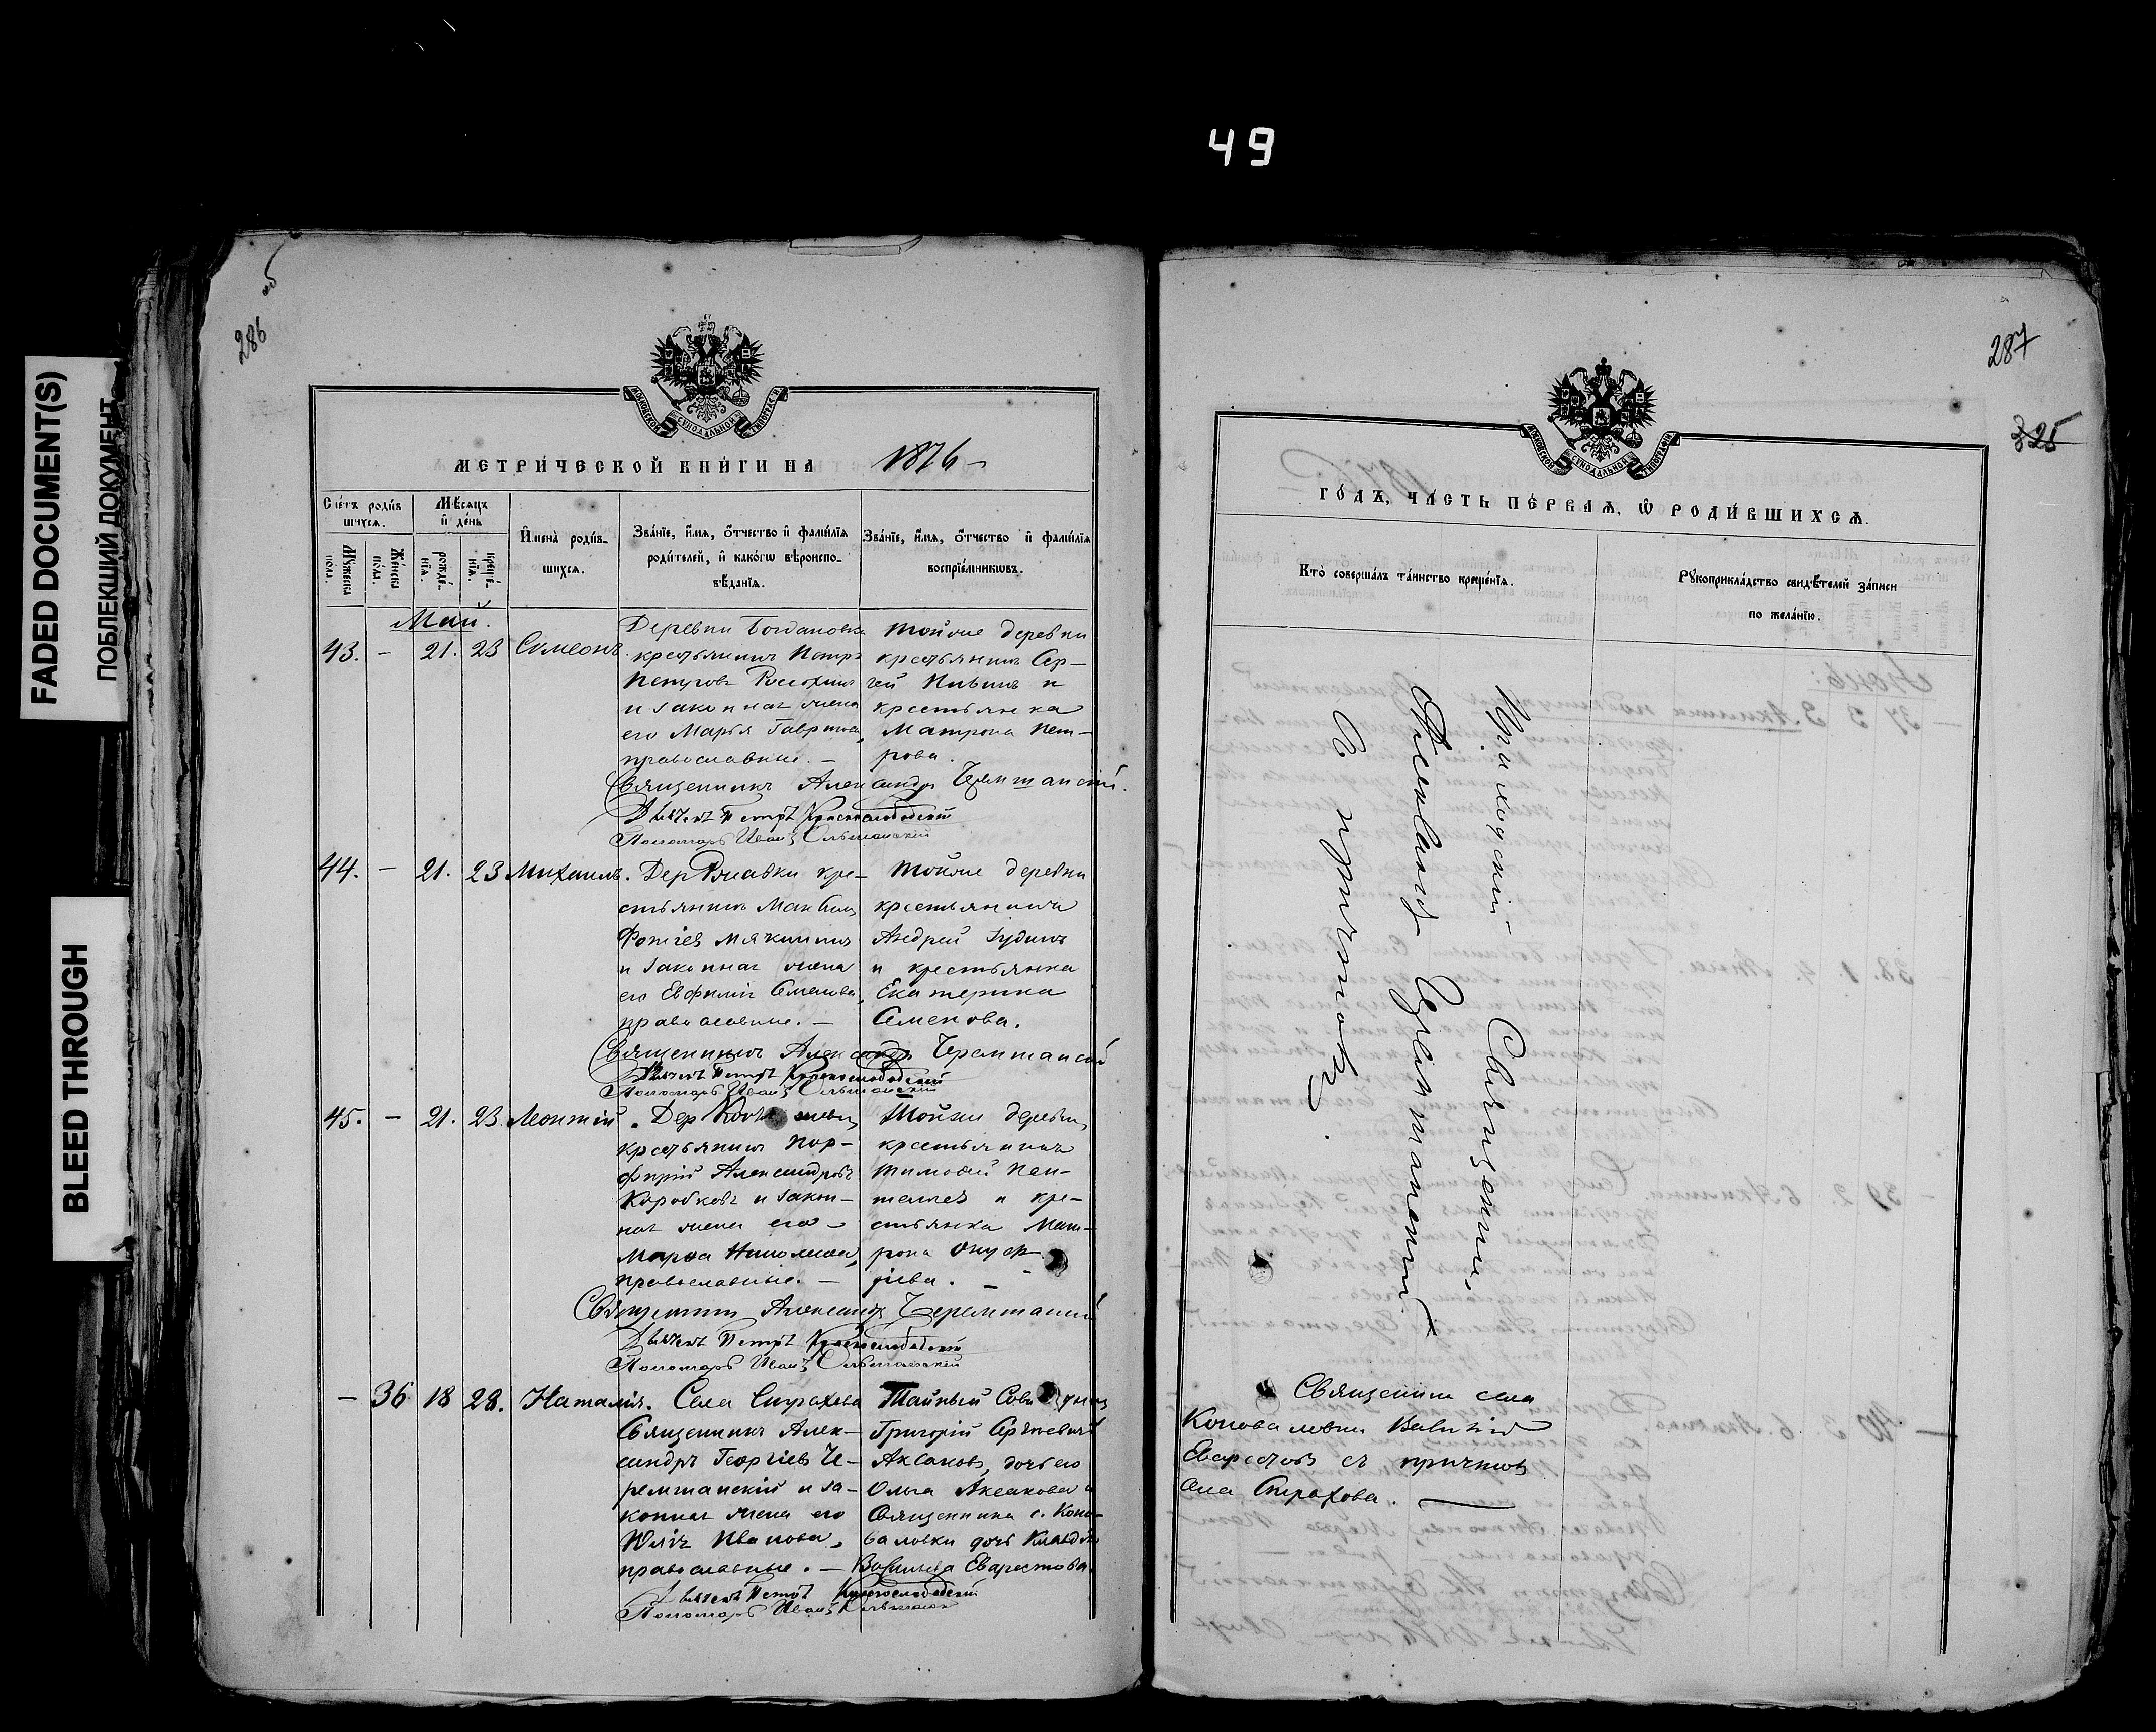 49
FADED DOCUMENT(S)
ПОБЛЕКШИЙ ДОКУМЕНТ
BLEED THROUGH
286 об
МОСКОВСКОЙ СѴНОДАЛЬНОЙ ТИПОГРАФ
МЕТРИ́ЧЕСКОЙ КНИ́ГИ НА 1876
Сче́тъ роди́в
шихся.
Мѣ́сяцъ
и҆ де́нь
И҆мена̀ роди́в-
шихся.
Зва́нїе, и҆́мя, ѻ҆́тчество и҆ фами́лїя
роди́телей, и҆ како́гѡ вѣроиспо-
вѣ́данїя.
Зва́нїе, и҆́мя, ѻ҆́тчество и҆ фами́лїя
воспрїе́мникѡвъ.
Мужеска
пола.
Женска
пола.
рожде́-
нїя.
креще́-
нїя.
Май.
43. – 21. 23 Симеонъ.
Деревни Богдановки
крестьянинъ Петръ
Петровъ
и законная жена
его Марья Гаврилова,
православные. –
тойже деревни
крестьянинъ Сер-
гей и
крестьянка
Матрона Пет-
рова.
Священникъ Александръ Черемшанскій.
Дьячекъ Петръ Краснослободскій
Пономарь Иванъ
44. – 21. 23 Михаилъ.
Дер кре-
стьянинъ
Фотіевъ Мякишинъ
и законная жена
его Евфимія Семенова,
православные. –
тойже деревни
крестьянинъ
Андрей Іудинъ
и крестьянка
Екатерина
Семенова.
Священникъ Александръ Черемшанскій
Дьячекъ Петръ Краснослободскій
Пономарь Иванъ
45. – 21. 23. Леонтій.
Дер
крестьянинъ Пор-
фирій Александровъ
Коробковъ и закон-
ная жена его
Марѳа Николаева,
православные. –
тойже деревни,
крестьянинъ
Тимоѳей Пан-
телеевъ и кре-
стьянка Мат-
рона Онуф-
ріева. –
Священникъ Александръ Черемшанскій
Дьячекъ Петръ Краснослободскій
Пономарь Иванъ
– 36 18 28. Наталія.
Села Страхова
Священникъ Алек-
сандръ Георгіевъ Че-
ремшанскій и за-
конная жена его
Юлія Иванова,
православные. –
Тайный Совѣтникъ
Григорій Сергѣевичъ
Аксаковъ, дочь его
Ольга Аксакова и
Священника с. Коно-
валовки дочь Клавдія
Васильева Еварестова
Дьячекъ Петръ Краснослободскій
Пономарь Иванъ
287
325
МОСКОВСКОЙ СѴНОДАЛЬНОЙ ТИПОГРАФІИ
ГО́ДЪ, ЧА́СТЬ ПЕ́РВАЯ, Ѡ҆ РОДИ́ВШИХСЯ.
Кто̀ соверша́лъ та́инство креще́нїя.
Рꙋкоприкла́дство свидѣ́телей за́писи
по жела́нїю.
Приходскій Священникъ
Александръ Черемшанскій
съ причтомъ.
Священникъ села
Коноваловки Василій
Еварестовъ съ причтомъ
села Страхова.